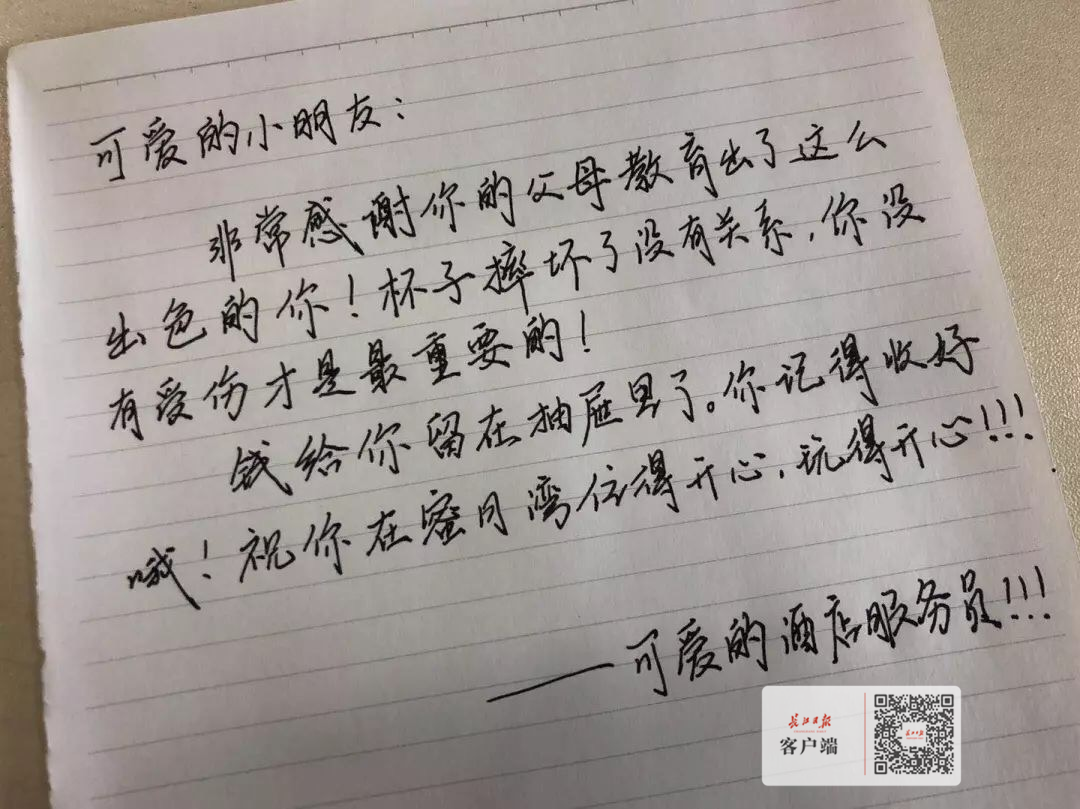 可爱的小朋友：
非常感谢你的父母教育出了这么
出色的你！杯子摔坏了没有关系，你没
有受伤才是最重要的！
钱给你留在抽屉里了。你记得收好
哦！祝你在蜜月湾住得开心，玩得开心!!!
——可爱的酒店服务员!!!
长江日报
客户端